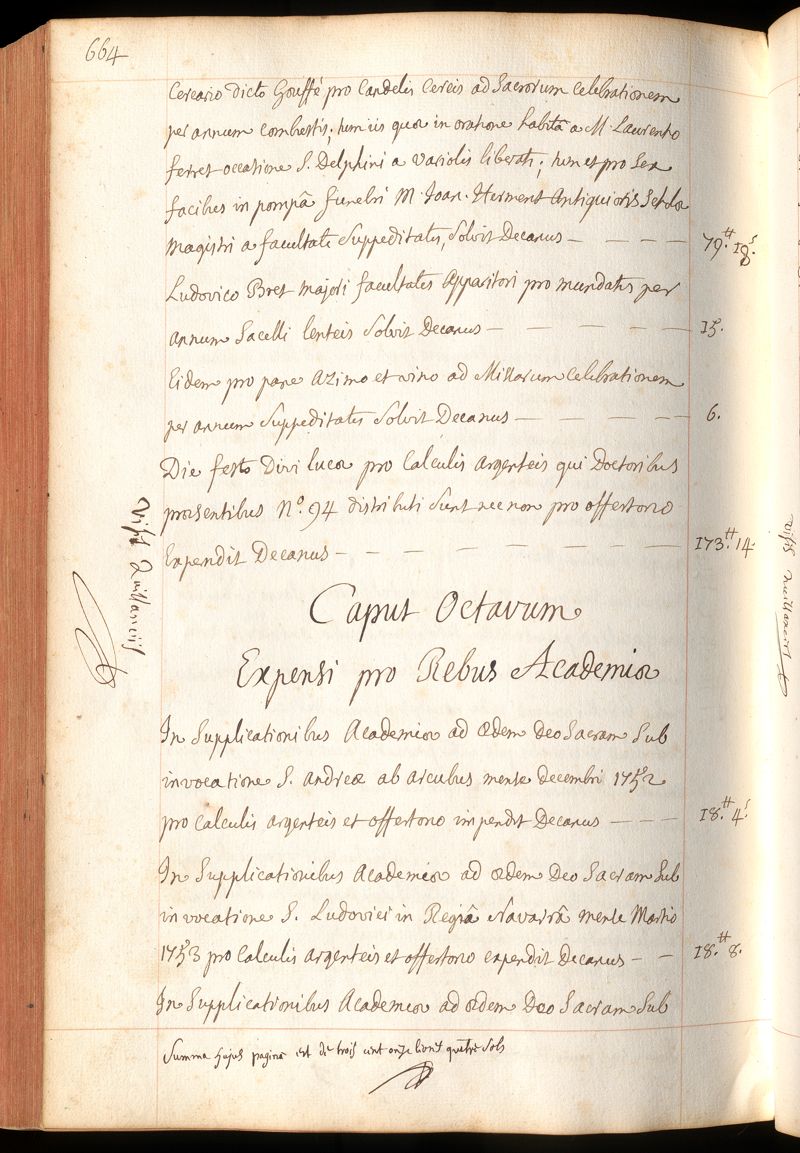 664
Cereario dicto Gouffé pro Candelis Cereis ad Sacrorum celebrationem
per annum combustis; tum iis quæ in oratione habitâ a M. Laurentio
ferret occasione S. Delphini a variolis liberati; tum et pro sex
facibus in pompâ funebri M. Joan. Herment Antiquioris Scholæ
Magistri a facultate Suppeditatis, Solvit Decanus — — — — 79.ᵗᵗ 18.ˢ
Ludovico Bret majori facultatis Apparitori pro mundatis per
annum Sacelli lenteis Solvit Decanus — — — — — 15.
Eidem pro pane Azimo et vino ad Missarum Celebrationem
per annum Suppeditatis Solvit Decanus — — — — — 6.
Die festo Divi lucæ pro Calculis argenteis qui Doctoribus
præsentibus N.º 94 distributi Sunt nec non pro offertorio
Expendit Decanus — — — — — — — — 173.ᵗᵗ 14.
Caput Octavum
Expensi pro Rebus Academiæ
In Supplicationibus Academiæ ad ædem Deo Sacram Sub
invocatione S. Andreæ ab arcubus mense decembri 1752
pro Calculis argenteis et offertorio impendit Decanus — — — 18.ᵗᵗ 4.ˢ
In Supplicationibus Academiæ ad ædem Deo Sacram Sub
invocatione S. Ludovici in Regiâ Navarrâ mense Martio
1753 pro Calculis argenteis et offertorio expendit Decanus — — 18.ᵗᵗ 8.
In Supplicationibus Academiæ ad ædem Deo Sacram Sub
Summa hujus paginæ est de trois cent onze livres quatre Sols